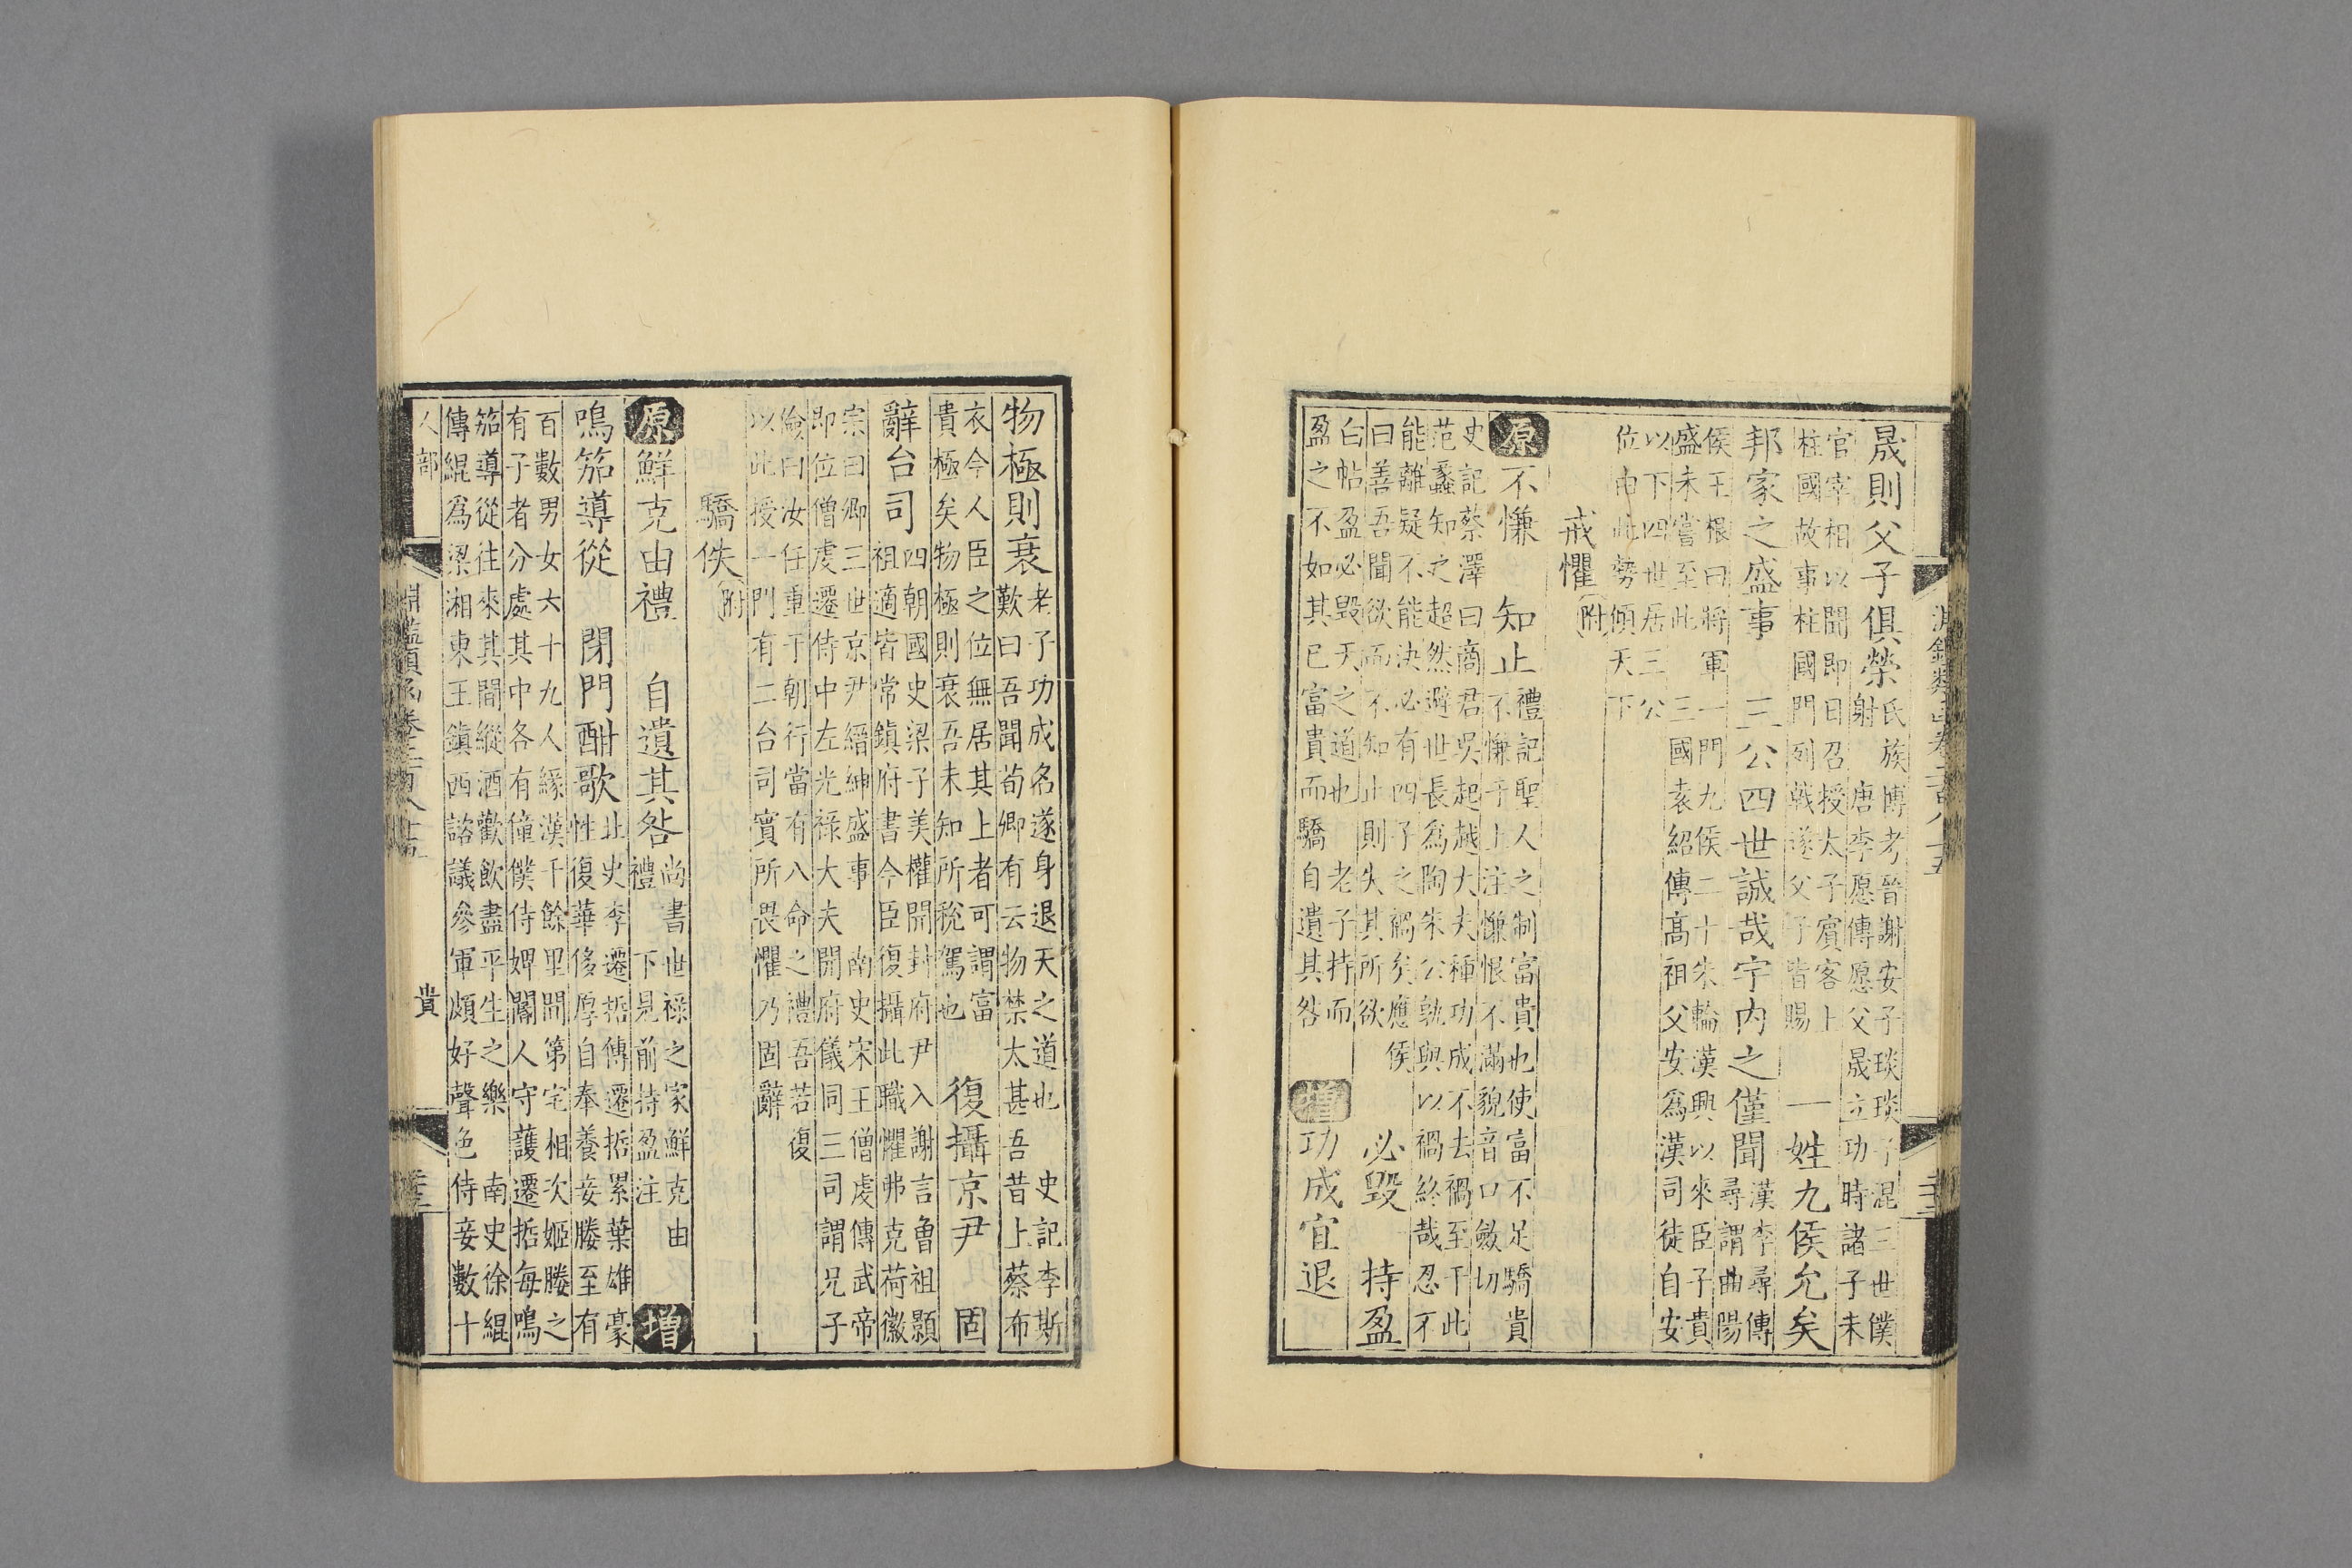 晟則父子俱榮 氏族博考晉謝安子琰琰子混三世僕
射 唐李愿傳愿父晟立功時諸子未
官宰相以聞即日召授太子賓客上
柱國故事柱國門列戟遂父子皆賜 一姓九侯允矣
邦家之盛事 三公四世誠哉宇内之僅聞 漢李尋傳
尋謂曲陽
侯王根曰將軍一門九侯二十朱輪漢興以來臣子貴
盛未嘗至此 三國袁紹傳高祖父安爲漢司徒自安
以下四世居三公
位由此勢傾天下
戒懼 附
原 不慊 知止 禮記聖人之制富貴也使富不足驕貴
不慊于上注慊恨不滿貌音口斂切
史記蔡澤曰商君吳起越大夫種功成不去禍至于此
范蠡知之超然避世長爲陶朱公孰與以禍終哉忍不
能離疑不能決必有四子之禍矣應侯
曰善吾聞欲而不知止則失其所欲 必毀 持盈
白帖盈必毀天之道也 老子持而
盈之不如其已富貴而驕自遺其咎 增 功成宜退
淵鑑類函卷二百八十五
物極則衰 老子功成名遂身退天之道也 史記李斯
歎曰吾聞荀卿有云物禁太甚吾昔上蔡布
衣今人臣之位無居其上者可謂富
貴極矣物極則衰吾未知所稅駕也 復攝京尹 固
辭台司 四朝國史梁子美權開封府尹入謝言魯祖顥
祖適皆常鎮府書今臣復攝此職懼弗克荷徽
宗曰卿三世京尹縉紳盛事 南史宋王僧虔傳武帝
即位僧虔遷侍中左光祿大夫開府儀同三司謂兄子
儉曰汝任重于朝行當有八命之禮吾若復
以此授一門有二台司實所畏懼乃固辭
驕佚 附
原 鮮克由禮 自遺其咎 尚書世祿之家鮮克由
禮 下見前持盈注 增
鳴笳導從 閉門酣歌 北史李遷哲傳遷哲累葉雄豪
性復華侈厚自奉養妾媵至有
百數男女六十九人緣漢千餘里間第宅相次姬媵之
有子者分處其中各有僮僕侍婢閽人守護遷哲每鳴
笳導從往來其間縱酒歡飲盡平生之樂 南史徐緄
傳緄爲梁湘東王鎮西諮議參軍頗好聲色侍妾數十
人部
貴